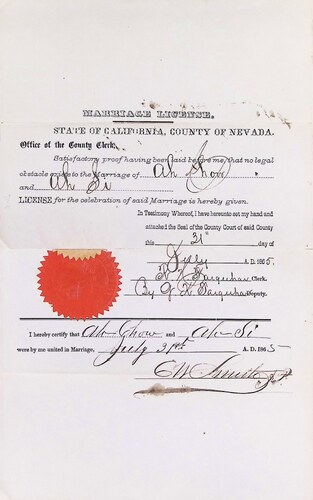 MARRIAGE LICENSE.
STATE OF CALIFORNIA, COUNTY OF NEVADA.
Office of the County Clerk,
Satisfactory proof having been laid before me, that no legal
obstacle exists to the Marriage of Ah Chow
and Ah Si
LICENSE for the celebration of said Marriage is hereby given.
In Testimony Whereof, I have hereunto set my hand and
attached the Seal of the County Court of said County
this 31st day of
July A.D. 1865
Farquhar Clerk.
By G K Farquhar Deputy.
I hereby certify that Ah Chow and Ah Si
were by me united in Marriage, July 31st A. D. 1865
C W Smith J.P.